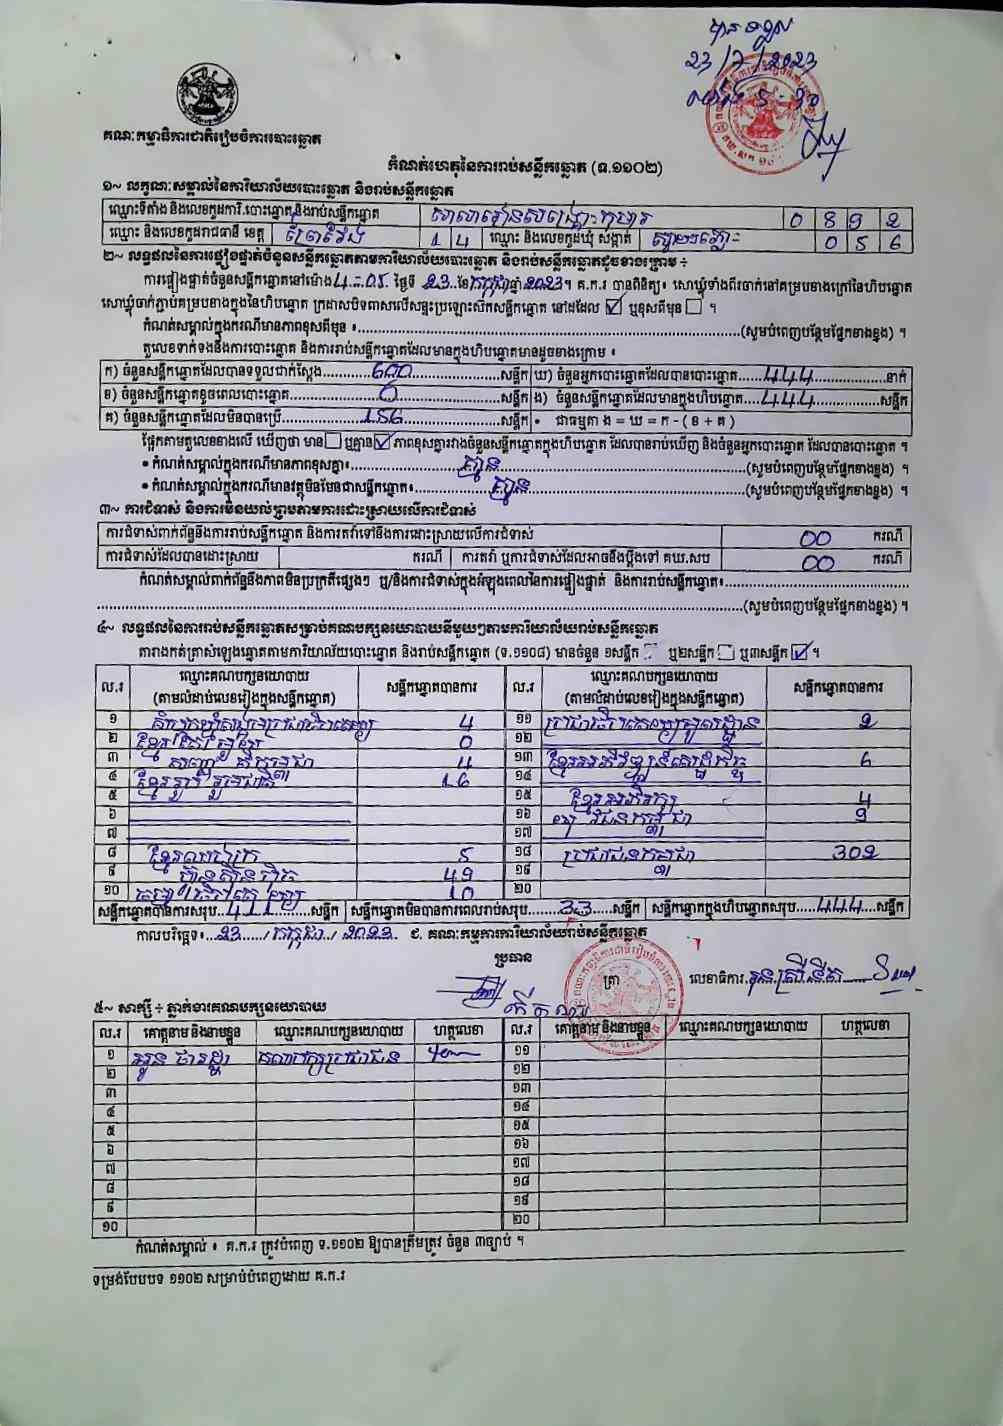 បានទទួល
23/7/2023
គណៈកម្មាធិការជាតិរៀបចំការបោះឆ្នោត
កំណត់ហេតុនៃការរាប់សន្លឹកឆ្នោត (ទ.១១០២)
១~ លក្ខណៈសម្គាល់នៃការិយាល័យបោះឆ្នោត និងរាប់សន្លឹកឆ្នោត
ឈ្មោះទីតាំង និងលេខកូដការិ.បោះឆ្នោត និងរាប់សន្លឹកឆ្នោត 0 8 9 2
ឈ្មោះ និងលេខកូដរាជធានី ខេត្ត ព្រៃវែង 1 4 ឈ្មោះ និងលេខកូដឃុំ សង្កាត់ 0 5 6
២~ លទ្ធផលនៃការផ្ទៀងផ្ទាត់ចំនួនសន្លឹកឆ្នោតតាមការិយាល័យបោះឆ្នោត និងរាប់សន្លឹកឆ្នោតដូចខាងក្រោម ÷
ការផ្ទៀងផ្ទាត់ចំនួនសន្លឹកឆ្នោតនៅម៉ោង 4 - 05 ថ្ងៃទី 23 ខែ កក្កដា ឆ្នាំ 2023 ។ គ.ក.រ បានពិនិត្យ៖ សោឃ្មុំទាំងពីរចាក់នៅគម្របខាងក្រៅនៃហិបឆ្នោត
សោឃ្មុំចាក់ភ្ជាប់គម្របខាងក្នុងនៃហិបឆ្នោត ក្រដាសបិទពាសលើសន្ទះប្រឡោះស៊កសន្លឹកឆ្នោត នៅដដែល ☑ ឬខុសពីមុន ☐ ។
កំណត់សម្គាល់ក្នុងករណីមានភាពខុសពីមុន ៖ (សូមបំពេញបន្ថែមផ្នែកខាងខ្នង) ។
តួលេខទាក់ទងនឹងការបោះឆ្នោត និងការរាប់សន្លឹកឆ្នោតដែលមានក្នុងហិបឆ្នោតមានដូចខាងក្រោម ៖
ក) ចំនួនសន្លឹកឆ្នោតដែលបានទទួលជាក់ស្តែង 600 សន្លឹក ឃ) ចំនួនអ្នកបោះឆ្នោតដែលបានបោះឆ្នោត 444 នាក់
ខ) ចំនួនសន្លឹកឆ្នោតខូចពេលបោះឆ្នោត 0 សន្លឹក ង) ចំនួនសន្លឹកឆ្នោតដែលមានក្នុងហិបឆ្នោត 444 សន្លឹក
គ) ចំនួនសន្លឹកឆ្នោតដែលមិនបានប្រើ 156 សន្លឹក • ជាធម្មតា ង = ឃ = ក - (ខ + គ)
ផ្អែកតាមតួលេខខាងលើ ឃើញថា មាន ☐ ឬគ្មាន ☑ ភាពខុសគ្នារវាងចំនួនសន្លឹកឆ្នោតក្នុងហិបឆ្នោត ដែលបានរាប់ឃើញ និងចំនួនអ្នកបោះឆ្នោត ដែលបានបោះឆ្នោត ។
• កំណត់សម្គាល់ក្នុងករណីមានភាពខុសគ្នា៖ គ្មាន (សូមបំពេញបន្ថែមផ្នែកខាងខ្នង) ។
• កំណត់សម្គាល់ក្នុងករណីមានវត្ថុមិនមែនជាសន្លឹកឆ្នោត៖ គ្មាន (សូមបំពេញបន្ថែមផ្នែកខាងខ្នង) ។
៣~ ការជំទាស់ និងការមិនយល់ព្រមតាមការដោះស្រាយលើការជំទាស់
ការជំទាស់ពាក់ព័ន្ធនឹងការរាប់សន្លឹកឆ្នោត និងការតវ៉ាទៅនឹងការដោះស្រាយលើការជំទាស់ 00 ករណី
ការជំទាស់ដែលបានដោះស្រាយ ករណី ការតវ៉ា ឬការជំទាស់ដែលអាចនឹងប្តឹងទៅ គឃ.សប 00 ករណី
កំណត់សម្គាល់ពាក់ព័ន្ធនឹងភាពមិនប្រក្រតីផ្សេងៗ ឬ/និងការជំទាស់ក្នុងអំឡុងពេលនៃការផ្ទៀងផ្ទាត់ និងការរាប់សន្លឹកឆ្នោត៖
(សូមបំពេញបន្ថែមផ្នែកខាងខ្នង) ។
៤~ លទ្ធផលនៃការរាប់សន្លឹកឆ្នោតសម្រាប់គណបក្សនយោបាយនីមួយៗតាមការិយាល័យរាប់សន្លឹកឆ្នោត
តារាងកត់ត្រាសំឡេងឆ្នោតតាមការិយាល័យបោះឆ្នោត និងរាប់សន្លឹកឆ្នោត (ទ.១១០៨) មានចំនួន ១សន្លឹក ☐ ឬ២សន្លឹក ☐ ឬ៣សន្លឹក ☑ ។
ល.រ ឈ្មោះគណបក្សនយោបាយ (តាមលំដាប់លេខរៀងក្នុងសន្លឹកឆ្នោត) សន្លឹកឆ្នោតបានការ ល.រ ឈ្មោះគណបក្សនយោបាយ (តាមលំដាប់លេខរៀងក្នុងសន្លឹកឆ្នោត) សន្លឹកឆ្នោតបានការ
១ 4 ១១ 2
២ 0 ១២
៣ 4 ១៣ 6
៤ ខ្មែររួបរួមជាតិ 16 ១៤
៥ ១៥ ខ្មែរអភិរក្ស 4
៦ ១៦ យុវជនកម្ពុជា 9
៧ ១៧
៨ 5 ១៨ ប្រជាជនកម្ពុជា 302
៩ ហ៊្វុនស៊ិនប៉ិច 49 ១៩
១០ 10 ២០
សន្លឹកឆ្នោតបានការសរុប 411 សន្លឹក សន្លឹកឆ្នោតមិនបានការពេលរាប់សរុប 33 សន្លឹក សន្លឹកឆ្នោតក្នុងហិបឆ្នោតសរុប 444 សន្លឹក
កាលបរិច្ឆេទ៖ 23 / កក្កដា / 2023 ជ. គណៈកម្មការការិយាល័យរាប់សន្លឹកឆ្នោត
ប្រធាន
ត្រា លេខាធិការ
៥~ សាក្សី ÷ ភ្នាក់ងារគណបក្សនយោបាយ
ល.រ គោត្តនាម និងនាមខ្លួន ឈ្មោះគណបក្សនយោបាយ ហត្ថលេខា ល.រ គោត្តនាម និងនាមខ្លួន ឈ្មោះគណបក្សនយោបាយ ហត្ថលេខា
១ គណបក្សប្រជាជន ១១
២ ១២
៣ ១៣
៤ ១៤
៥ ១៥
៦ ១៦
៧ ១៧
៨ ១៨
៩ ១៩
១០ ២០
កំណត់សម្គាល់ ៖ គ.ក.រ ត្រូវបំពេញ ទ.១១០២ ឱ្យបានត្រឹមត្រូវ ចំនួន ៣ច្បាប់ ។
ទម្រង់បែបបទ ១១០២ សម្រាប់បំពេញដោយ គ.ក.រ